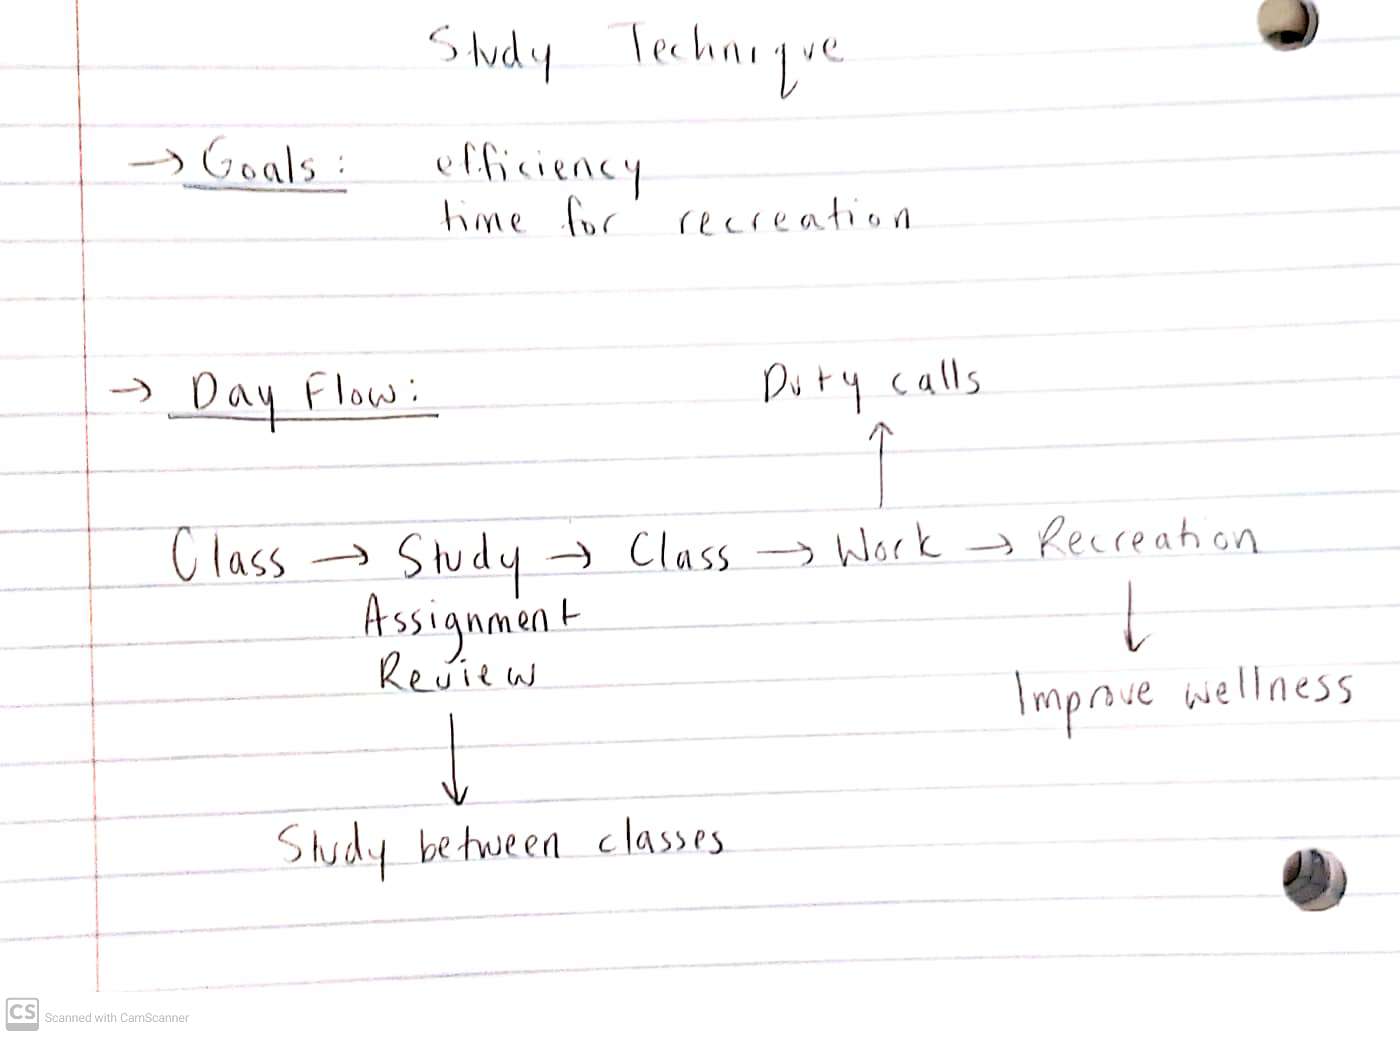 Study Technique
→ Goals: efficiency
time for recreation
→ Day Flow:
Duty calls
↑
Class → Study → Class → Work → Recreation
Assignment
Review
↓
Improve wellness
↓
Study between classes
CS Scanned with CamScanner